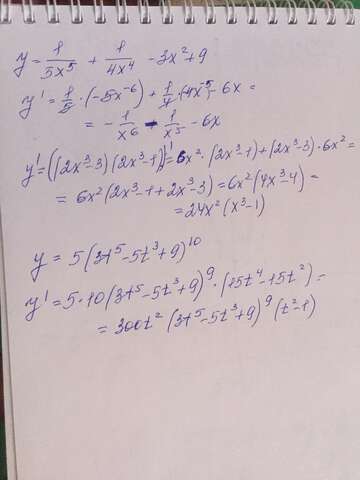 y = 1/5x⁵ + 1/4x⁴ - 3x² + 9
y' = 1/5 · (-5x⁻⁶) + 1/4 · (4x⁻⁵) - 6x =
= - 1/x⁶ - 1/x⁵ - 6x
y' = ((2x³-3)(2x³-1))' = 6x² · (2x³-1) + (2x³-3) · 6x² =
= 6x² (2x³-1+2x³-3) = 6x² (4x³-4) =
= 24x² (x³-1)
y = 5(3t⁵-5t³+9)¹⁰
y' = 5·10(3t⁵-5t³+9)⁹ · (15t⁴-15t²) =
= 300t² (3t⁵-5t³+9)⁹ (t²-1)